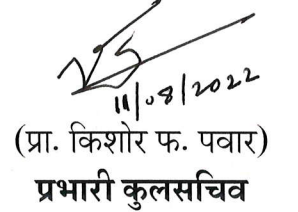 11/08/2022
(प्रा. किशोर फ. पवार)
प्रभारी कुलसचिव